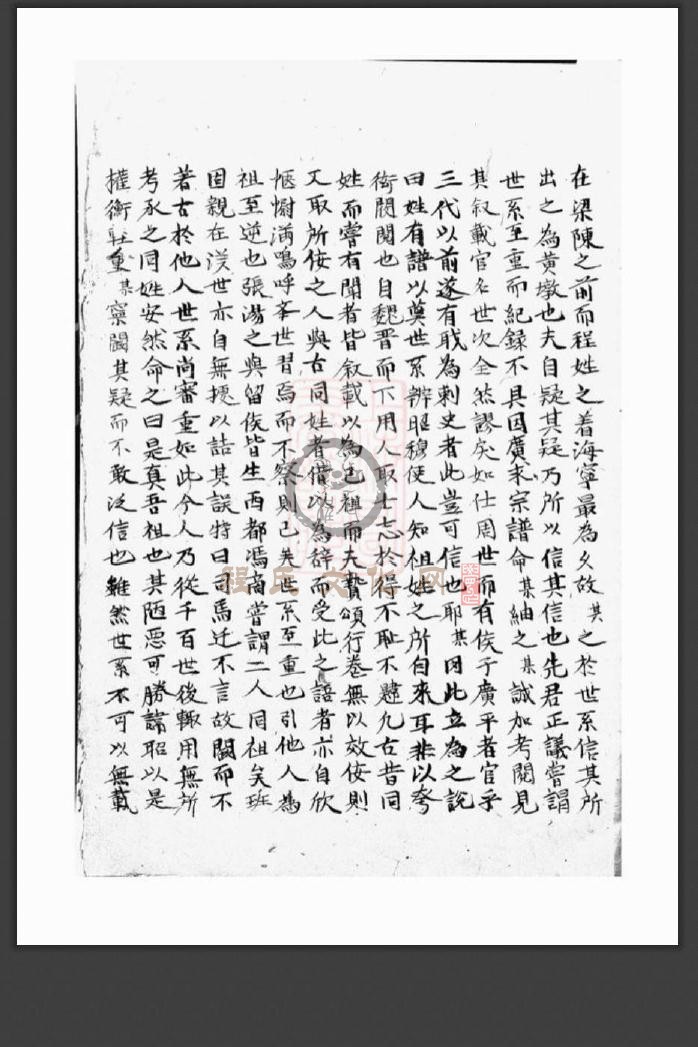 在梁陳之前而程姓之着海寧最為久故某之於世系信其所
出之為黄墩也夫自疑其疑乃所以信其信也先君正議嘗謂
世系至重而紀録不具因廣求宗譜命某紬之某誠加考閱見
其叙載官名世次全然謬戾如仕周世而有侯于廣平者官乎
三代以前遂有戝為刺史者此豈可信也耶某因此立為之說
曰姓有譜以奠世系辨昭穆使人知祖姓之所自來耳非以誇
衒閥閱也自魏晋而下用人取士志於得不耻不韙凢古昔同
姓而嘗有聞者皆叙載以為已祖而夫贄頌行巻無以效侫則
又取所侫之人與古同姓者借以為辞而受此之語者亦自欣
愜懰満鳴呼举世習焉而不察則已失世系至重也引他人為
祖至逆也張湯之與留侯皆生西都馮商嘗謂二人同祖矣班
固親在漢世亦自無擾以詰其誤特曰司馬迁不言故闕而不
著古於他人世系尚審重如此今人乃從千百世後輙用無所
考承之同姓安然命之曰是真吾祖也其陋惡可勝諱耶以是
權衡輕重某寧闕其疑而不敢泛信也雖然世系不可以無載
程氏文化网